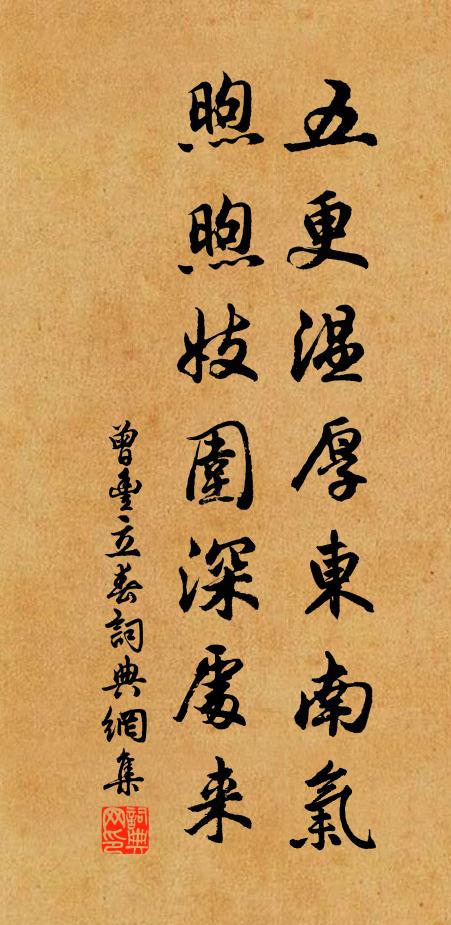 五更温厚東南氣
煦煦妓圍深處来
曾豊立春詞典網集
詞典网印